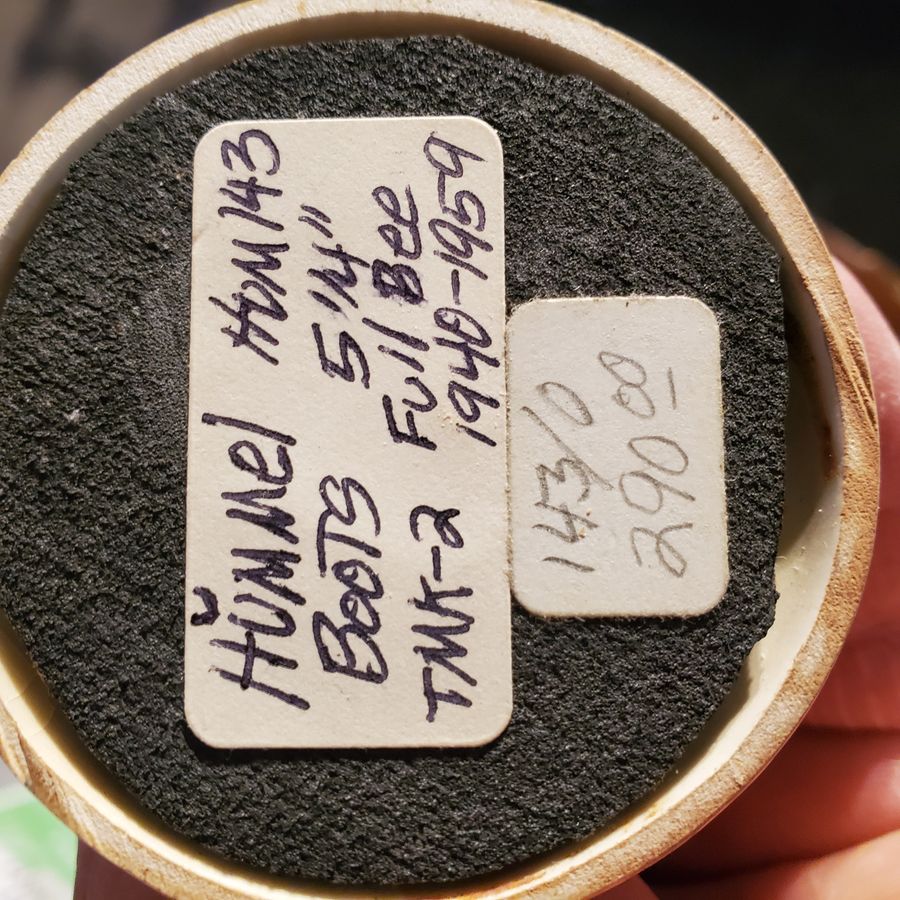 Hummel HUM 143
Boots 5 1/4"
TMK-2 Full Bee
1940-1959
143/0
290.00